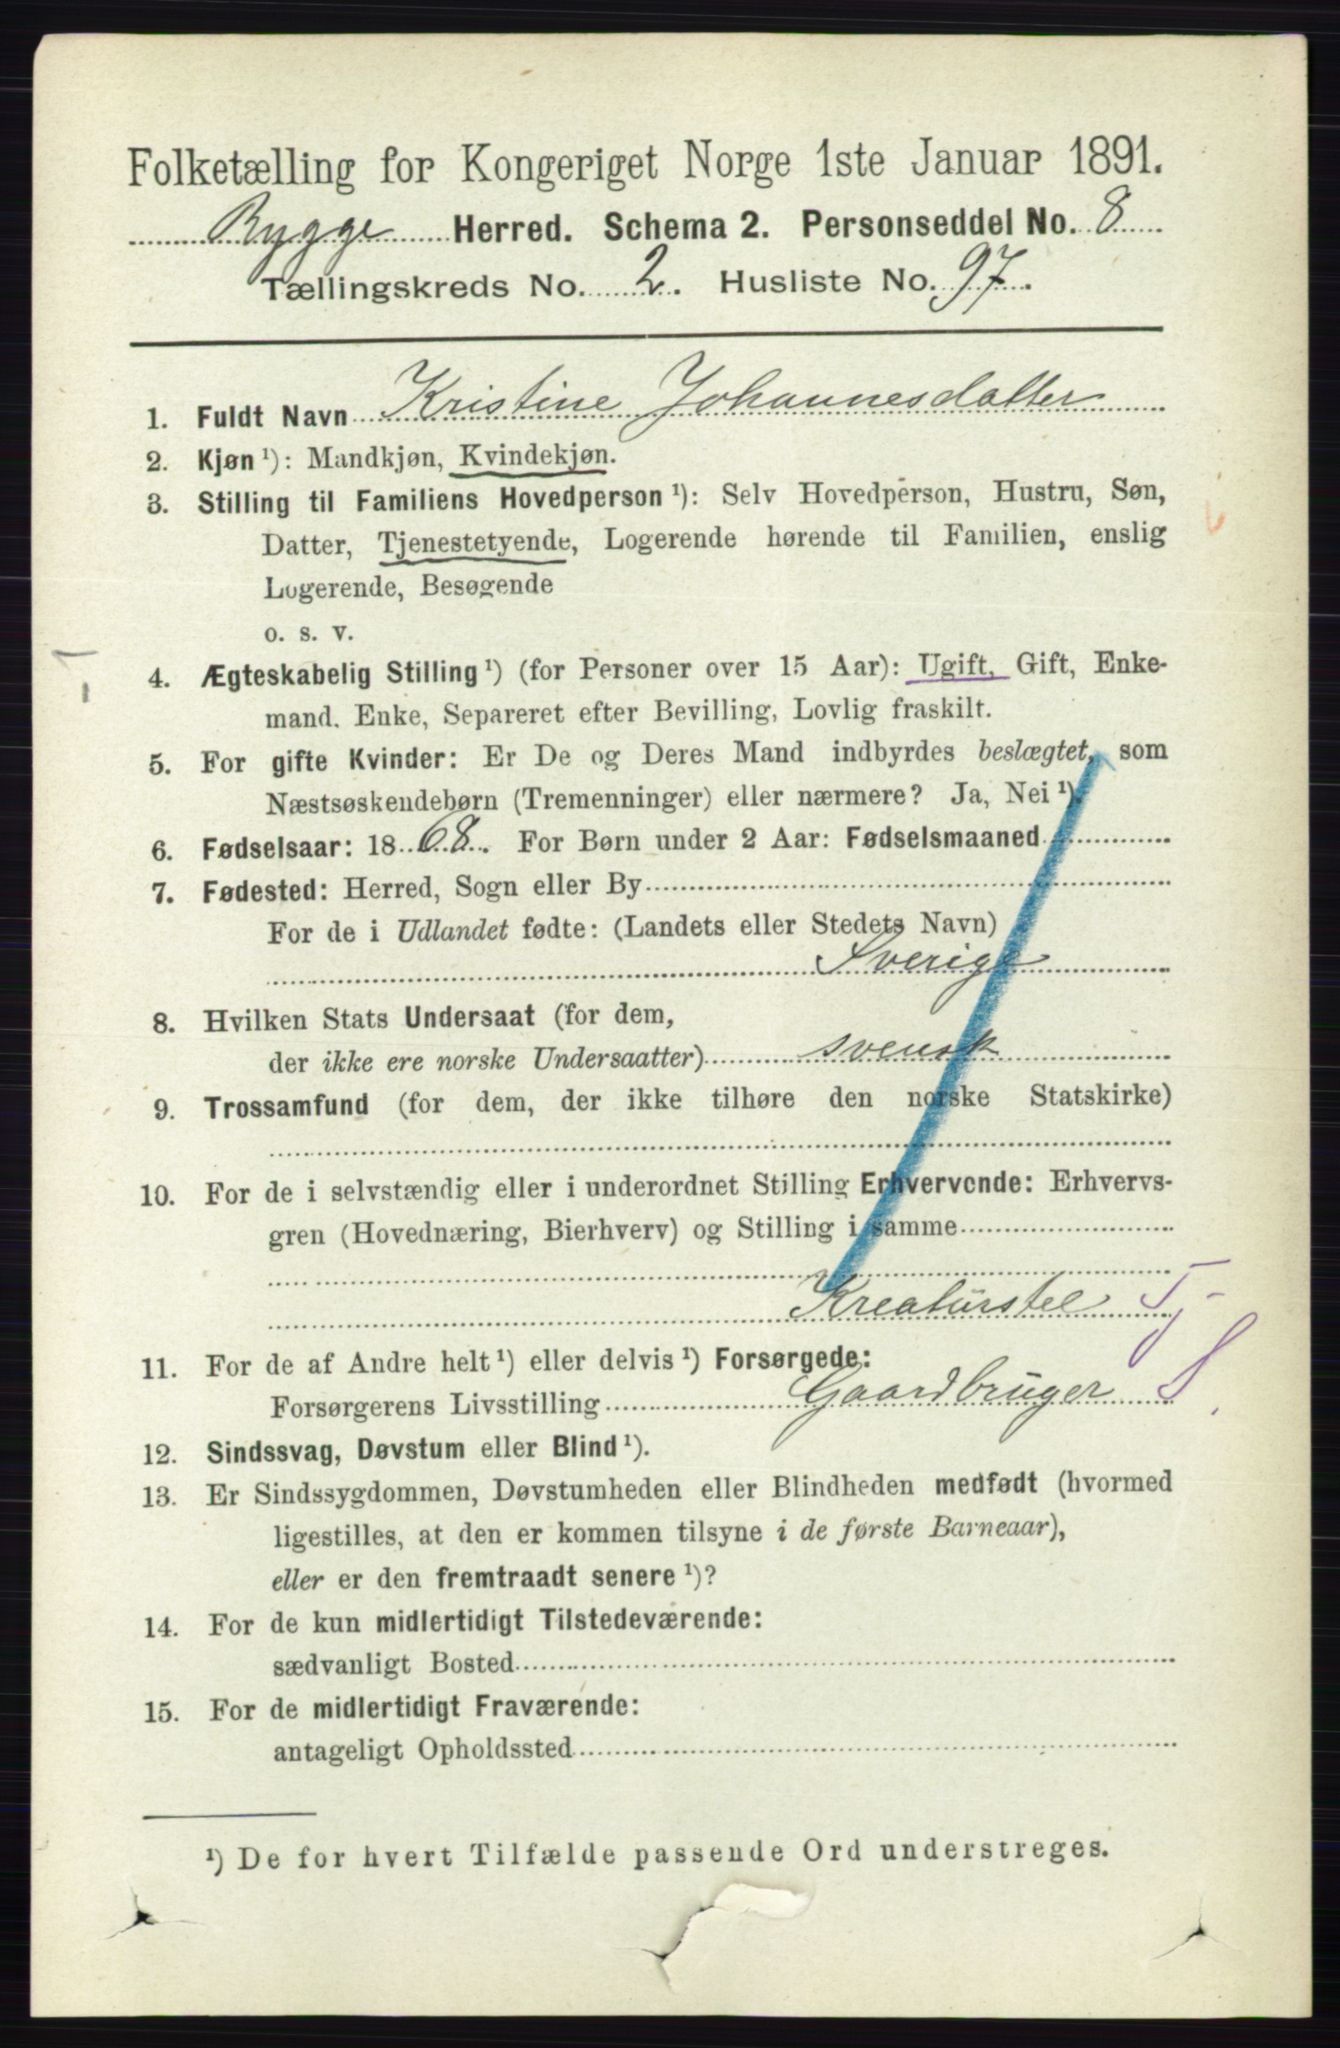 Folketælling for Kongeriget Norge 1ste Januar 1891.
Rygge Herred. Schema 2. Personseddel No. 8
Tællingskreds No. 2. Husliste No. 97.
1. Fuldt Navn Kristine Johannesdatter
2. Kjøn ¹): Mandkjøn, Kvindekjøn.
3. Stilling til Familiens Hovedperson ¹): Selv Hovedperson, Hustru, Søn,
Datter, Tjenestetyende, Logerende hørende til Familien, enslig
Logerende, Besøgende
o. s. v.
4. Ægteskabelig Stilling ¹) (for Personer over 15 Aar): Ugift, Gift, Enke-
mand, Enke, Separeret efter Bevilling, Lovlig fraskilt.
5. For gifte Kvinder: Er De og Deres Mand indbyrdes beslægtet, som
Næstsøskendebørn (Tremenninger) eller nærmere? Ja, Nei ¹).
6. Fødselsaar: 1868. For Børn under 2 Aar: Fødselsmaaned
7. Fødested: Herred, Sogn eller By
For de i Udlandet fødte: (Landets eller Stedets Navn)
Sverige
8. Hvilken Stats Undersaat (for dem,
der ikke ere norske Undersaatter) svensk
9. Trossamfund (for dem, der ikke tilhøre den norske Statskirke)
10. For de i selvstændig eller i underordnet Stilling Erhvervende: Erhvervs-
gren (Hovednæring, Bierhverv) og Stilling i samme
Kreaturstel Tj
11. For de af Andre helt ¹) eller delvis ¹) Forsørgede:
Forsørgerens Livsstilling Gaardbruger S
12. Sindssvag, Døvstum eller Blind ¹).
13. Er Sindssygdommen, Døvstumheden eller Blindheden medfødt (hvormed
ligestilles, at den er kommen tilsyne i de første Barneaar),
eller er den fremtraadt senere ¹)?
14. For de kun midlertidigt Tilstedeværende:
sædvanligt Bosted
15. For de midlertidigt Fraværende:
antageligt Opholdssted
¹) De for hvert Tilfælde passende Ord understreges.